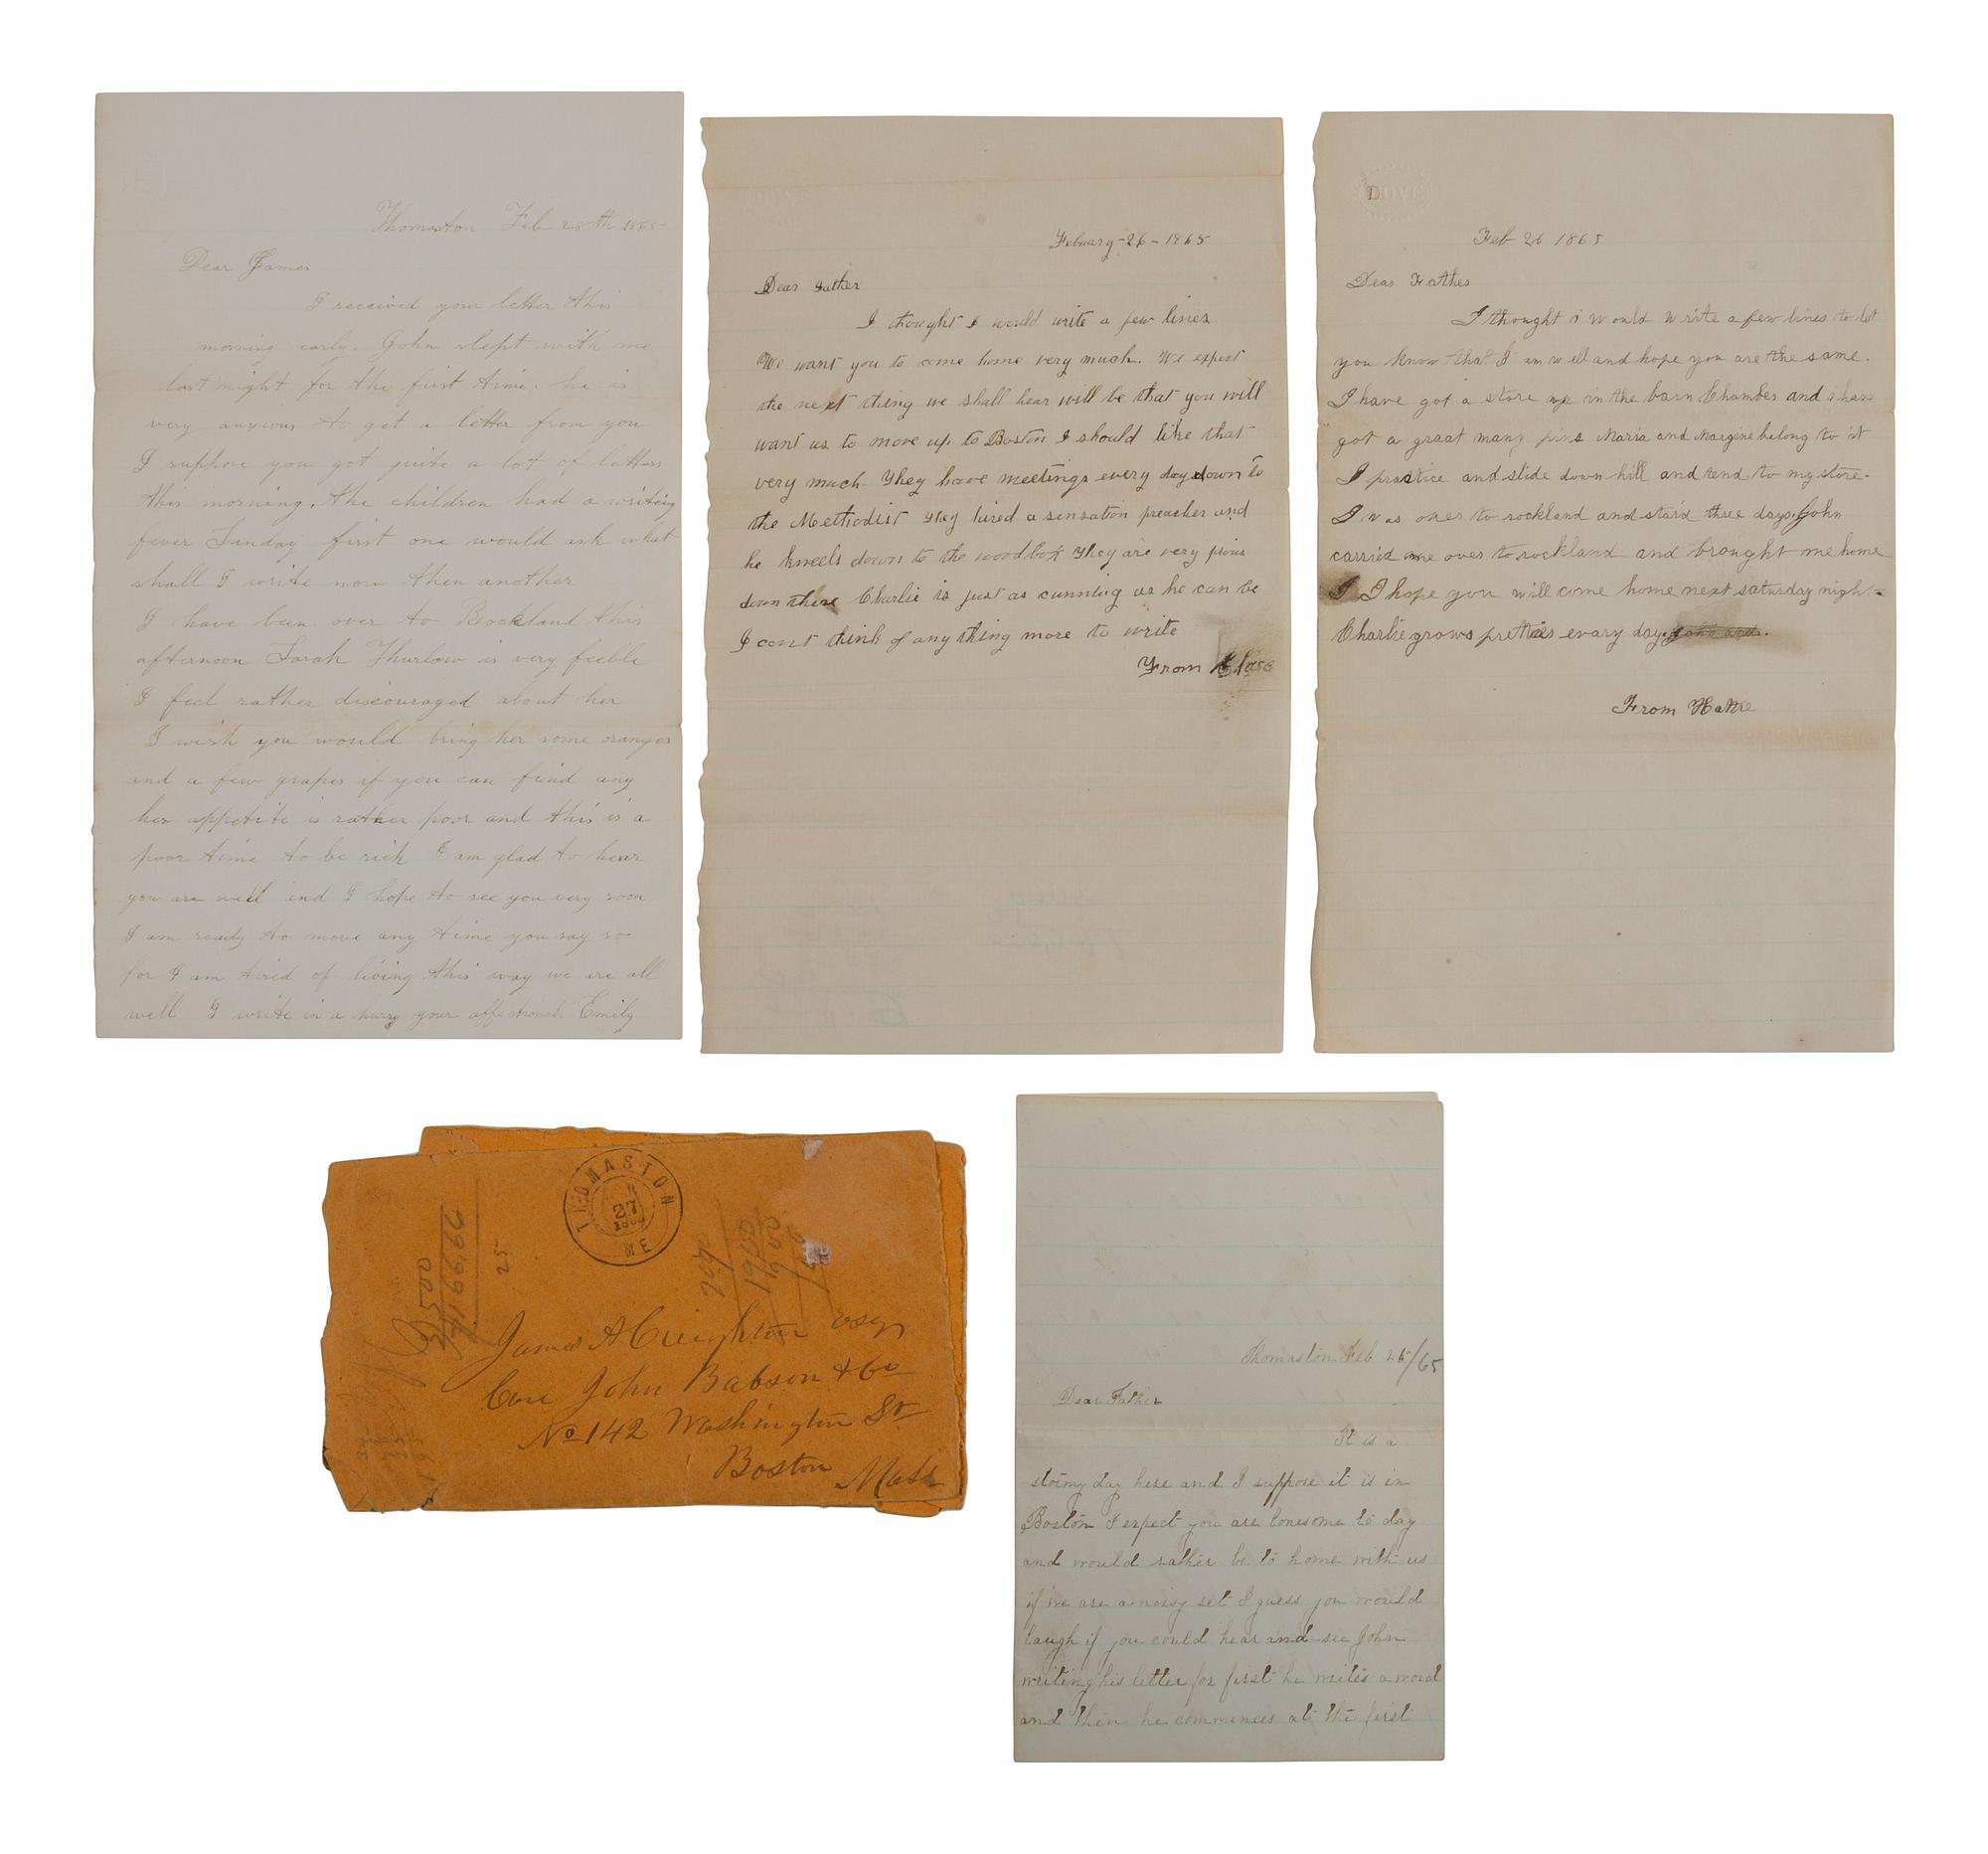 Thomaston Feb 28th 1865
Dear James
I received your letter this
morning early. John slept with me
last night for the first time. he is
very anxious to get a letter from you
I suppose you got quite a lot of letters
this morning. the children had a writing
fever Sunday first one would ask what
shall I write now then another
I have been over to Rockland this
afternoon Sarah Thurlow is very feeble
I feel rather discouraged about her
I wish you would bring her some oranges
and a few grapes if you can find any
her appetite is rather poor and this is a
poor time to be sick I am glad to hear
you are well and I hope to see you very soon
I am ready to move any time you say so
for I am tired of living this way we are all
well I write in a hurry your affectionate Emily
Febuary-26-1865
Dear Father
I thought I would write a few lines
We want you to come home very much. We expect
the next thing we shall hear will be that you will
want us to move up to Boston I should like that
very much They have meetings every day down to
the Methodist They hired a sensation preacher and
he kneels down to the woodbox They are very pious
down there Charlie is just as cunning as he can be
I cant think of any thing more to write
From
DOVER
Feb 26 1865
Dear Father
I thought i would write a few lines to let
you know that I am well and hope you are the same.
I have got a store up in the barn Chamber and i have
got a graat many pins Maria and Margine belong to it
I practice and slide down hill and tend to my store.
I was over to rockland and staid three days. John
carried me over to rockland and brought me home
I I hope you will come home next saturday nigh.
Charlie grows pretties evary day.
From Hattie
THOMASTON
27
1865
ME
25
James A Creighton Esqr
Care John Babson & Co
No 142 Washington St
Boston Mass
Thomaston Feb 26/65
Dear Father
It is a
stormy day here and I suppose it is in
Boston I expect you are lonesome to day
and would rather be to home with us
if we are a noisy set I guess you would
laugh if you could hear and see John
writing his letter for first he writes a word
and then he commences at the first